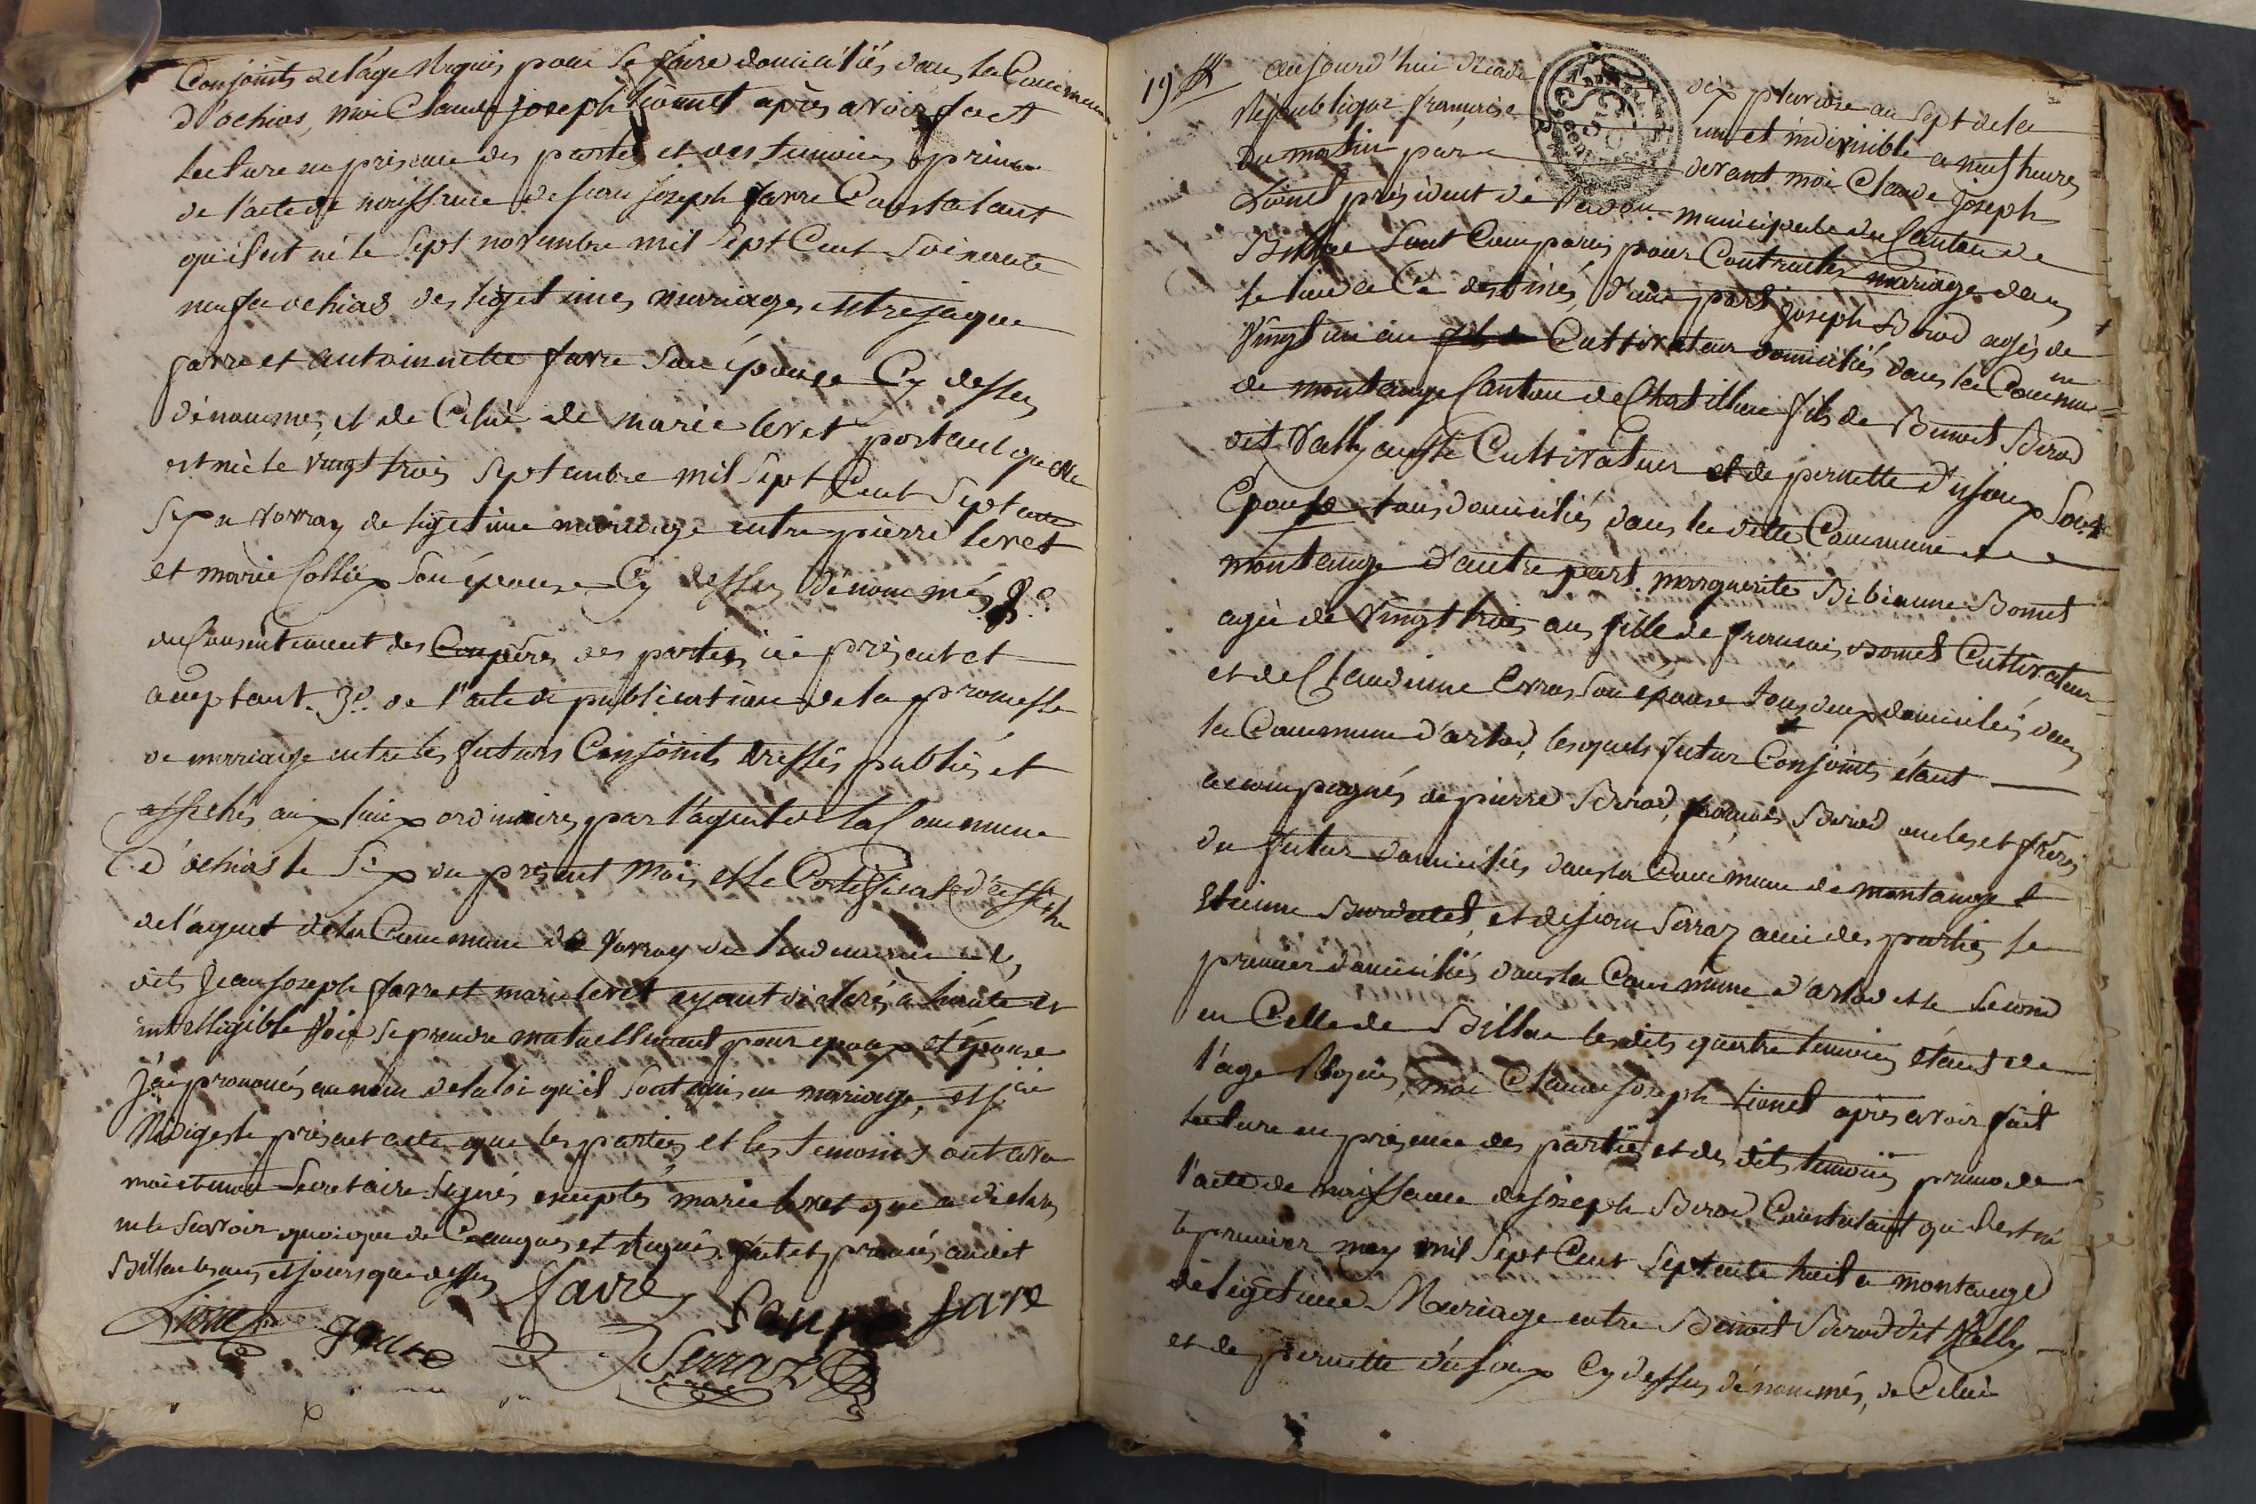 Conjoints de l'âge Requis pour se faire domiciliés dans la Commune
d'ochias, moi Claude joseph Lionet après avoir fait
lecture en présence des parties et des temoins primo
de l'acte de naissance de jean joseph favre Constatant
qu'il est né le sept novembre mil sept Cent soixante
neuf a ochias des legitimes mariages entre jaque
favre et antoinette favre son épouse Cy dessus
dénommés, et de Celui de marie levet portant quelle
est née le vingt trois septembre mil sept Cent septante
six a vovray de legitime mariage entre pierre levet
et marie Collix son épouse Cy dessus dénommés 2°.
du Consentement des pères des parties ici présent et
aceptant. 3°. de l'acte de publication de la promesse
de mariage entre les futurs Conjoints dressés publiés et
affichés aux lieux ordinaires par l'agent de la Commune
d'ochias le six du présent mois et le Certificat d'affiche
de l'agent de la Commune de vovray du lendemain les
dits jean joseph favre et marie levet ayant déclarés à haute et
intelligible voix se prendre mutuellement pour epoux et épouse
j'ai prononcés au nom de la loi qu'il sont unis en mariage, et j'ai
Rédigés le présent acte que les parties et les temoins ont avec
moi et mon Secretaire signés exceptés marie levet qui a declarés
ne le scavoir quoique de Ce enquis et Requis fait et prononcés audit
Billiat les an et jours que dessus
favre
Lionet favre favre
Serraz
19 aujourd'hui décade dix pluviose an sept de la
République francaise une et indivisible a neuf heures
du matin par devant moi Claude Joseph
Lionet président de l'adon. municipale du Canton de
Billiat sont Comparus pour Contracter mariage dans
le lieu a Ce destinés, d'une part joseph Berod agés de
vingt un an Cultivateur domiciliés dans la Commune
de montange Canton de Chatillon fils de Benoit Berod
dit Vally aussi Cultivateur et de pernette dujoux son
Epouse tous domiciliés dans la ditte Commune de
montange d'autre part marguerite Bibianne Bornet
agée de vingt trois ans fille de francois Bornet Cultivateur
et de Claudinne Evras son épouse tous deux domiciliés dans
la Commune d'arlod, lesquels futur Conjoints étant
accompagnés de pierre Berod, francois Berod oncles et frères
du futur domiciliés dans la Commune de montange et
Etienne et de jean Serraz ami des parties le
premier domiciliés dans la Commune d'arlod et le second
en Celle de Billiat les dits quatre temoins étant de
l'age Requis, moi Claude joseph Lionet après avoir fait
lecture en présence des parties et des dits temoins primo de
l'acte de naissance de joseph Berod, Constatant qu'il est né
le premier may mil sept Cent septante huit a montange
de légitime Mariage entre Benoit Berod dit Vally
et de pernette dujoux Cy dessus dénommés, de Celui